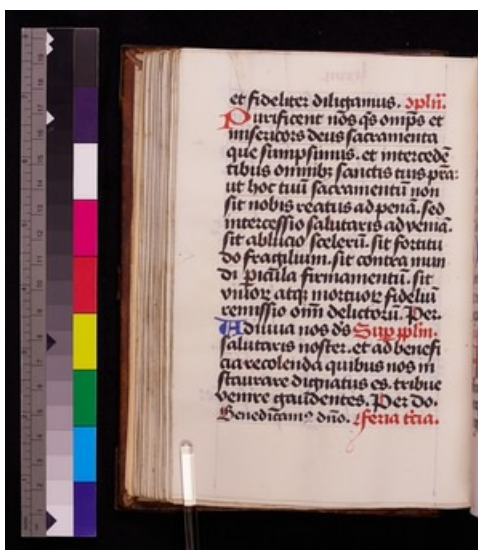 et fideliter diligamus. ɔplīī.
Purificent nos q̄s omīps et
misericors deus sacramenta
que sumpsimus. et intercedē
tibus omnibꝫ sanctis tuis prā:
ut hoc tuū sacramentū non
sit nobis reatus ad penā. sed
intercessio salutaris ad veniā.
sit ablucio scelerū. sit fortitu
do fragilium. sit contra mun
di pericula firmamentū. sit
vivoꝝ atqꝫ mortuoꝝ fideliū
remissio omī delictorū. Per.
Adiuva nos ds̄ Sup pplm̄.
salutaris noster. et ad benefi
cia recolenda quibus nos in
staurare dignatus es. tribue
venire gaudentes. Per do.
Benedicamꝰ dn̄o. feria tc̄ia.